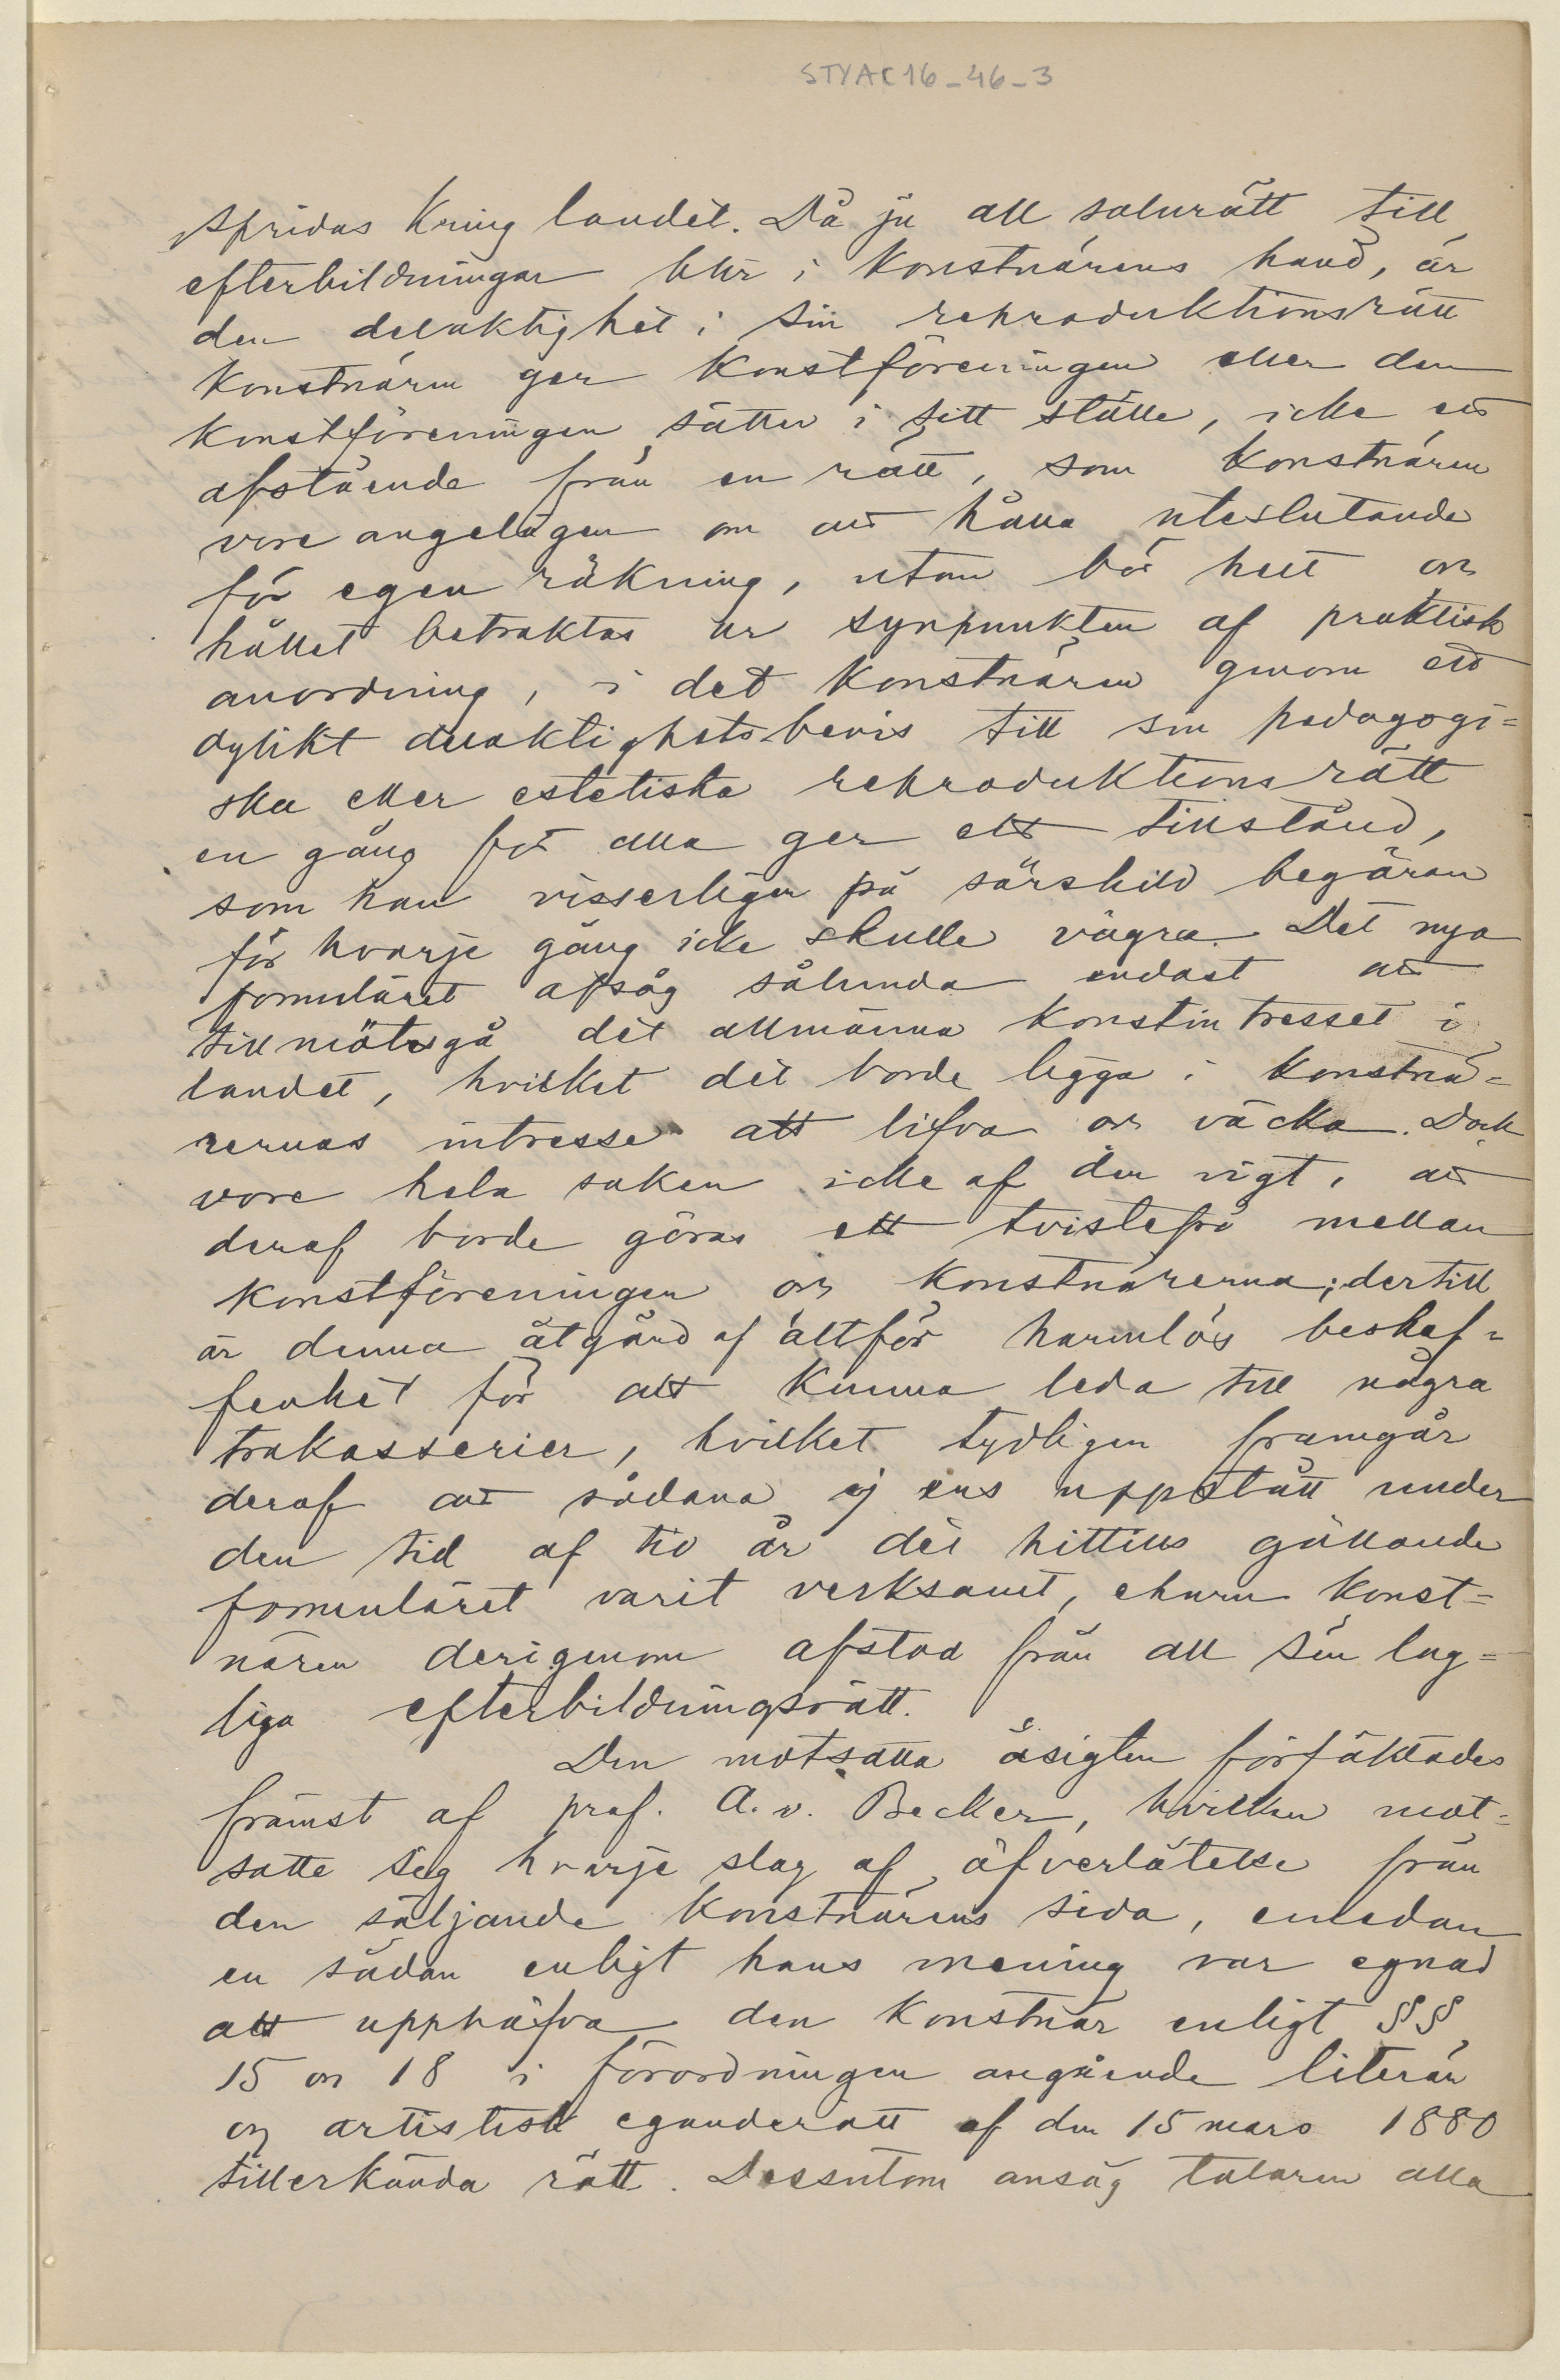 STYAC16_46_3
spridas kring landet. Då ju all salurätt till
efterbildningar blir i konstnärens hand, är
den delaktighet i sin reproduktionsrätt
konstnären ger konstföreningen eller den
konstföreningen sätter i sitt ställe, icke ett
afstående från en rätt, som konstnären
vore angelägen om att hålla uteslutande
för egen räkning, utan bör helt och
hållet betraktas ur synpunkten af praktisk
anordning, i det konstnären genom ett
dylikt delaktighetsbevis till sin pedagogi=
ska eller estetiska reproduktionsrätt
en gång för alla ger ett tillstånd,
som han visserligen på särskild begäran
för hvarje gång icke skulle vägra. Det nya
formuläret afsåg sålunda endast att
tillmötesgå det allmänna konstintresset i
landet, hvilket det borde ligga i konstnä=
rernas intresse att lifva och väcka. Dock
vore hela saken icke af den vigt, att
deraf borde göras ett tvistefrö mellan
konstföreningen och konstnärerna; dertill
är denna åtgärd af alltför harmlös beskaf=
fenhet för att kunna leda till några
trakasserier, hvilket tydligen framgår
deraf att sådana ej ens uppstått under
den tid af tio år det hittills gällande
formuläret varit verksamt, ehuru konst=
nären derigenom afstod från all sin lag=
liga efterbildningsrätt.
Den motsatta åsigten förfäktades
främst af prof. A. v. Becker, hvilken mot=
satte sig hvarje slag af öfverlåtelse från
den säljande konstnärens sida, emedan
en sådan enligt hans mening var egnad
att upphäfva den konstnär enligt §§
15 och 18 i förordningen angående literär
och artistisk eganderätt af den 15 mars 1880
tillerkända rätt. Dessutom ansåg talaren alla